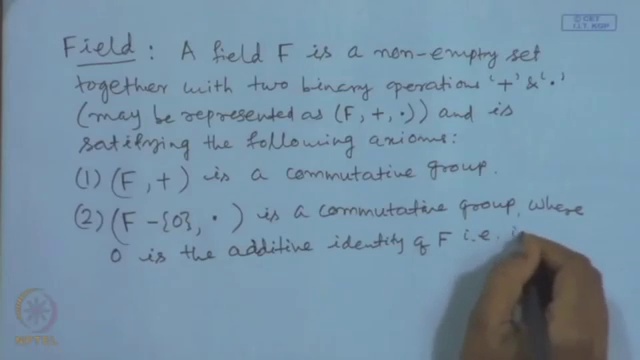 © CET
I.I.T. KGP
Field : A field F is a non-empty set
together with two binary operations '+' & '·'
(may be represented as (F, +, ·)) and is
satisfying the following axioms:
(1) (F, +) is a commutative group.
(2) (F - {0}, ·) is a commutative group, where
0 is the additive identity of F i.e. i
NPTEL